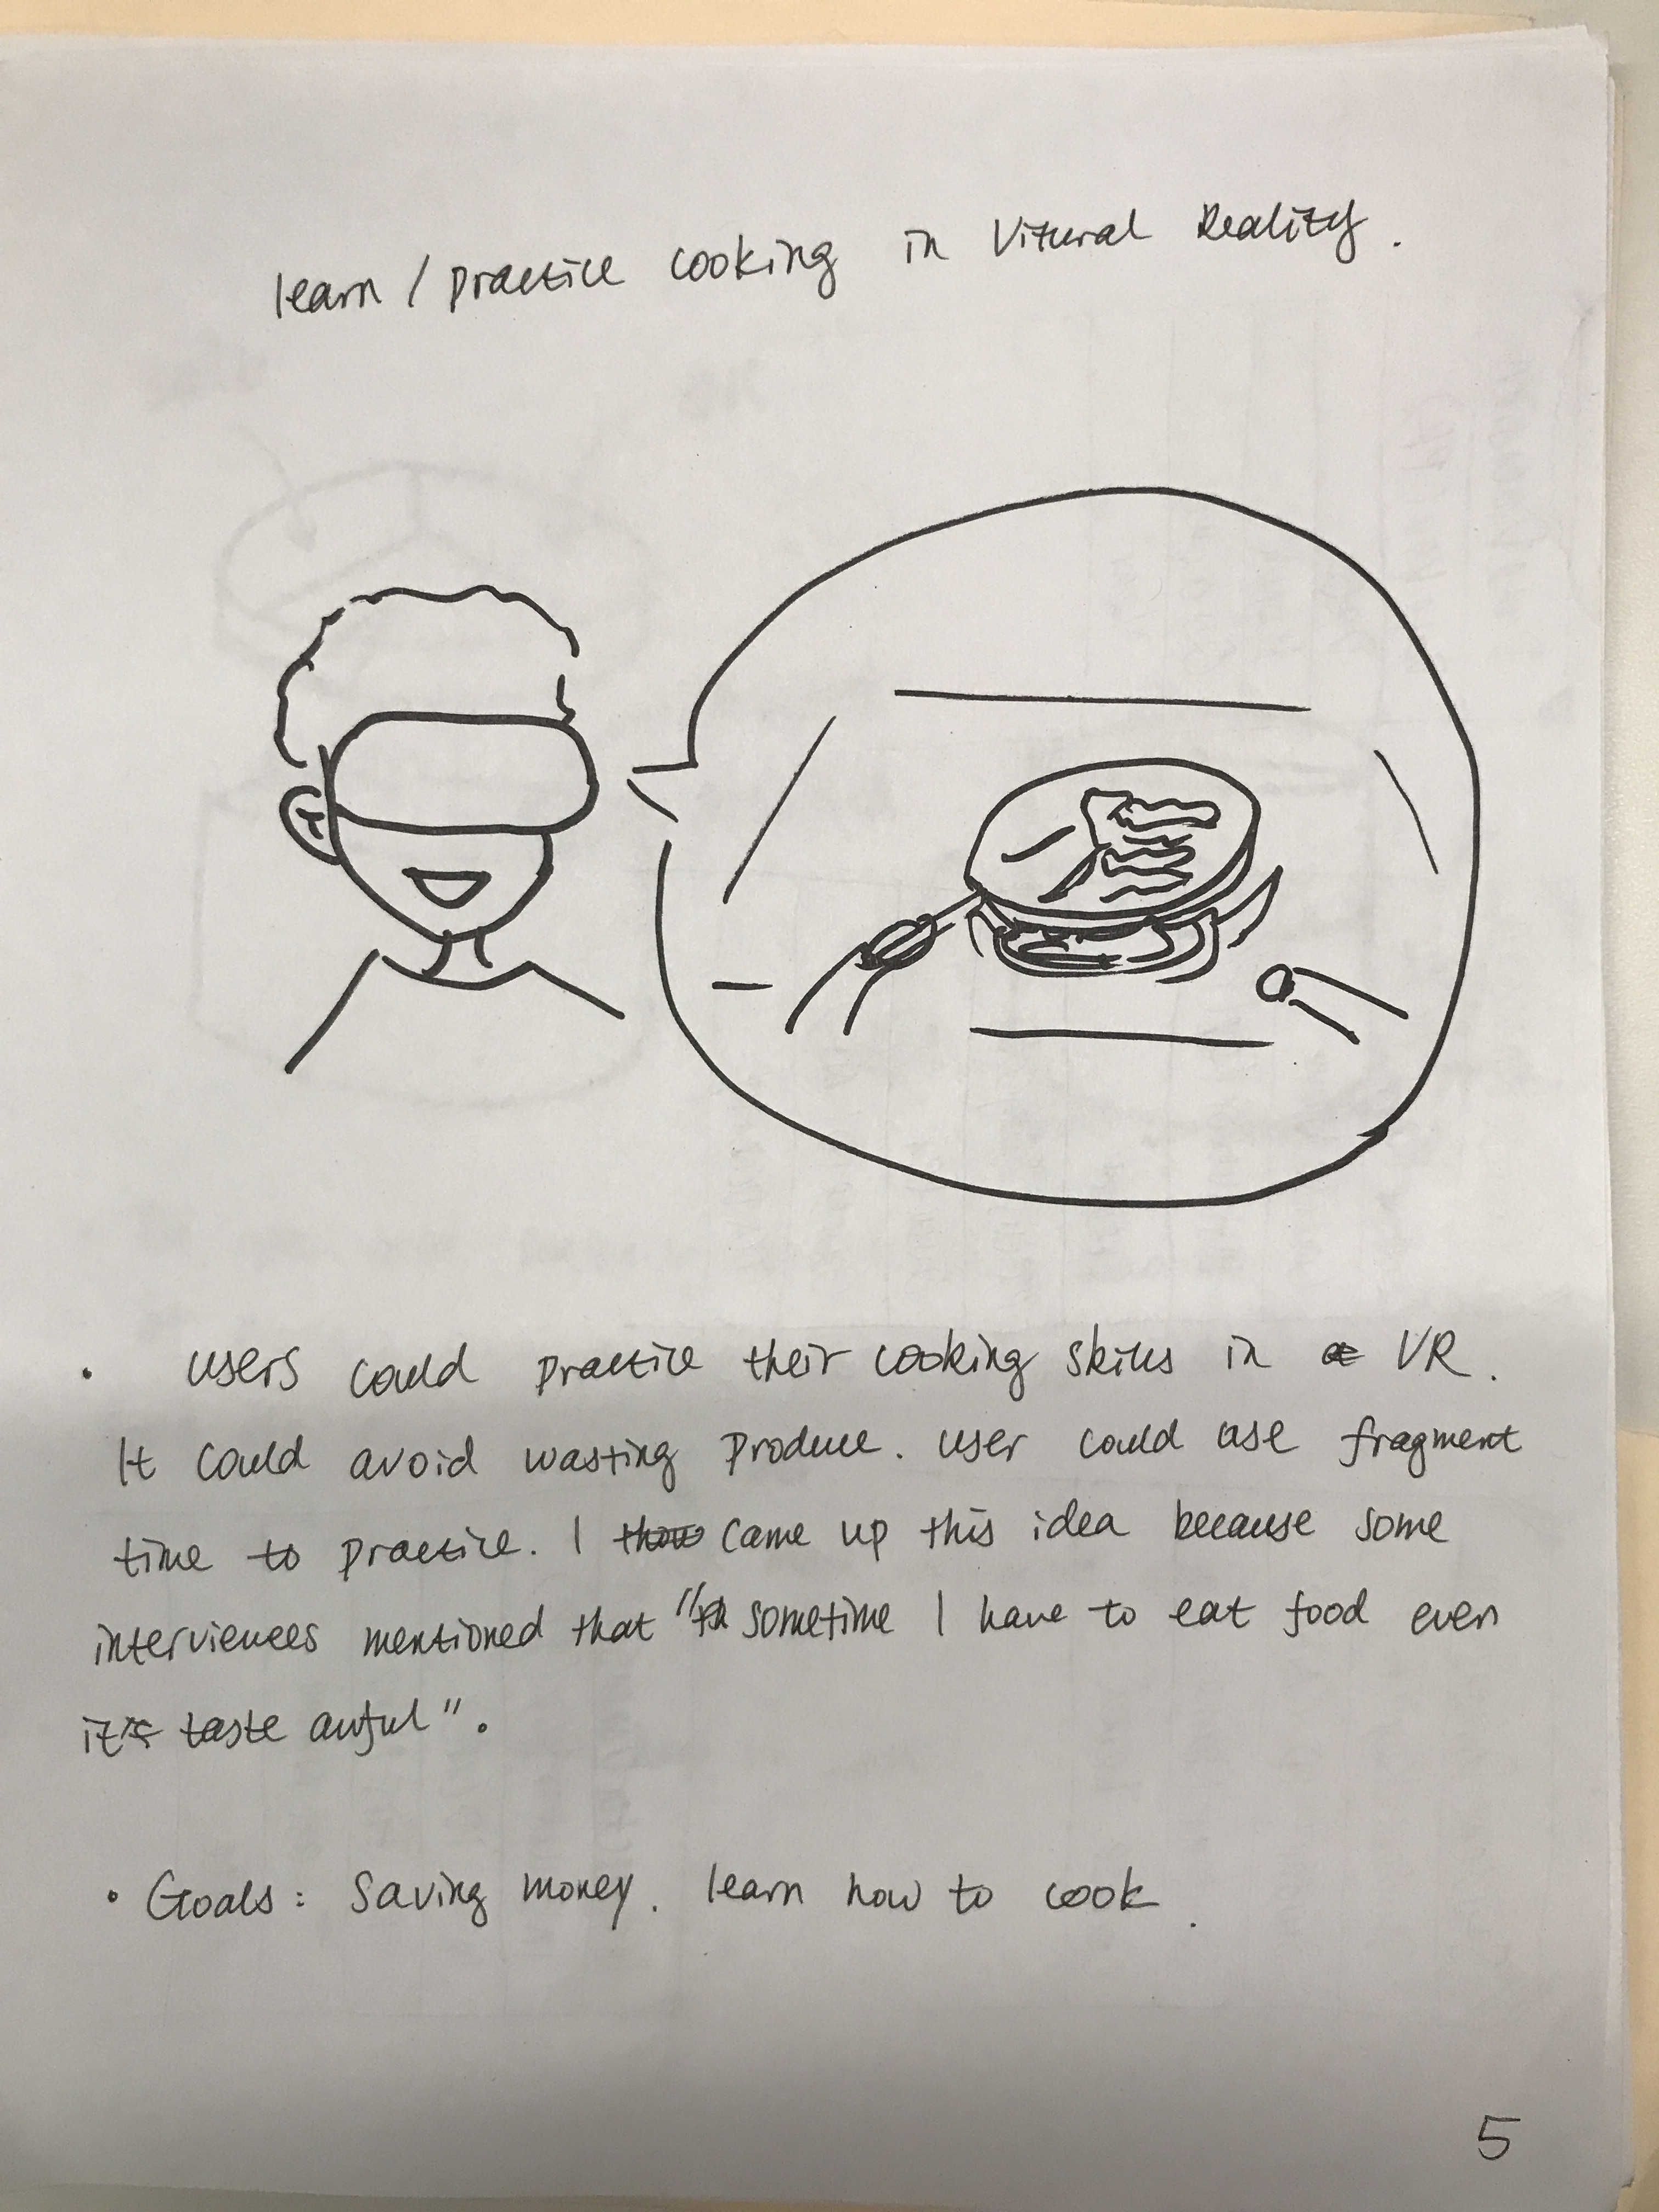 learn / practice cooking in Vitural Reality.
• users could practice their cooking skills in VR.
It could avoid wasting produce. user could use fragment
time to practice. I came up this idea because some
interviewees mentioned that "sometime I have to eat food even
it taste awful".
• Goals: Saving money. learn how to cook.
5